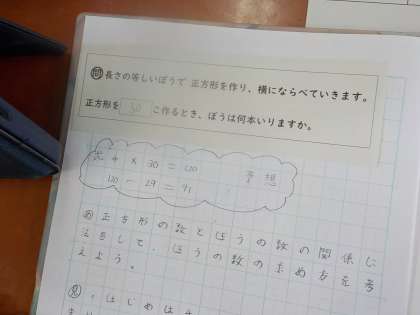 問 長さの等しいぼうで 正方形を作り、横にならべていきます。
正方形を 30 こ作るとき、ぼうは何本いりますか。
式 4 × 30 = 120 予想
120 - 29 = 91
め 正方形の数とぼうの数の関係に
注目して、ぼうの数の求め方を考
えよう。
見 ・はじめは